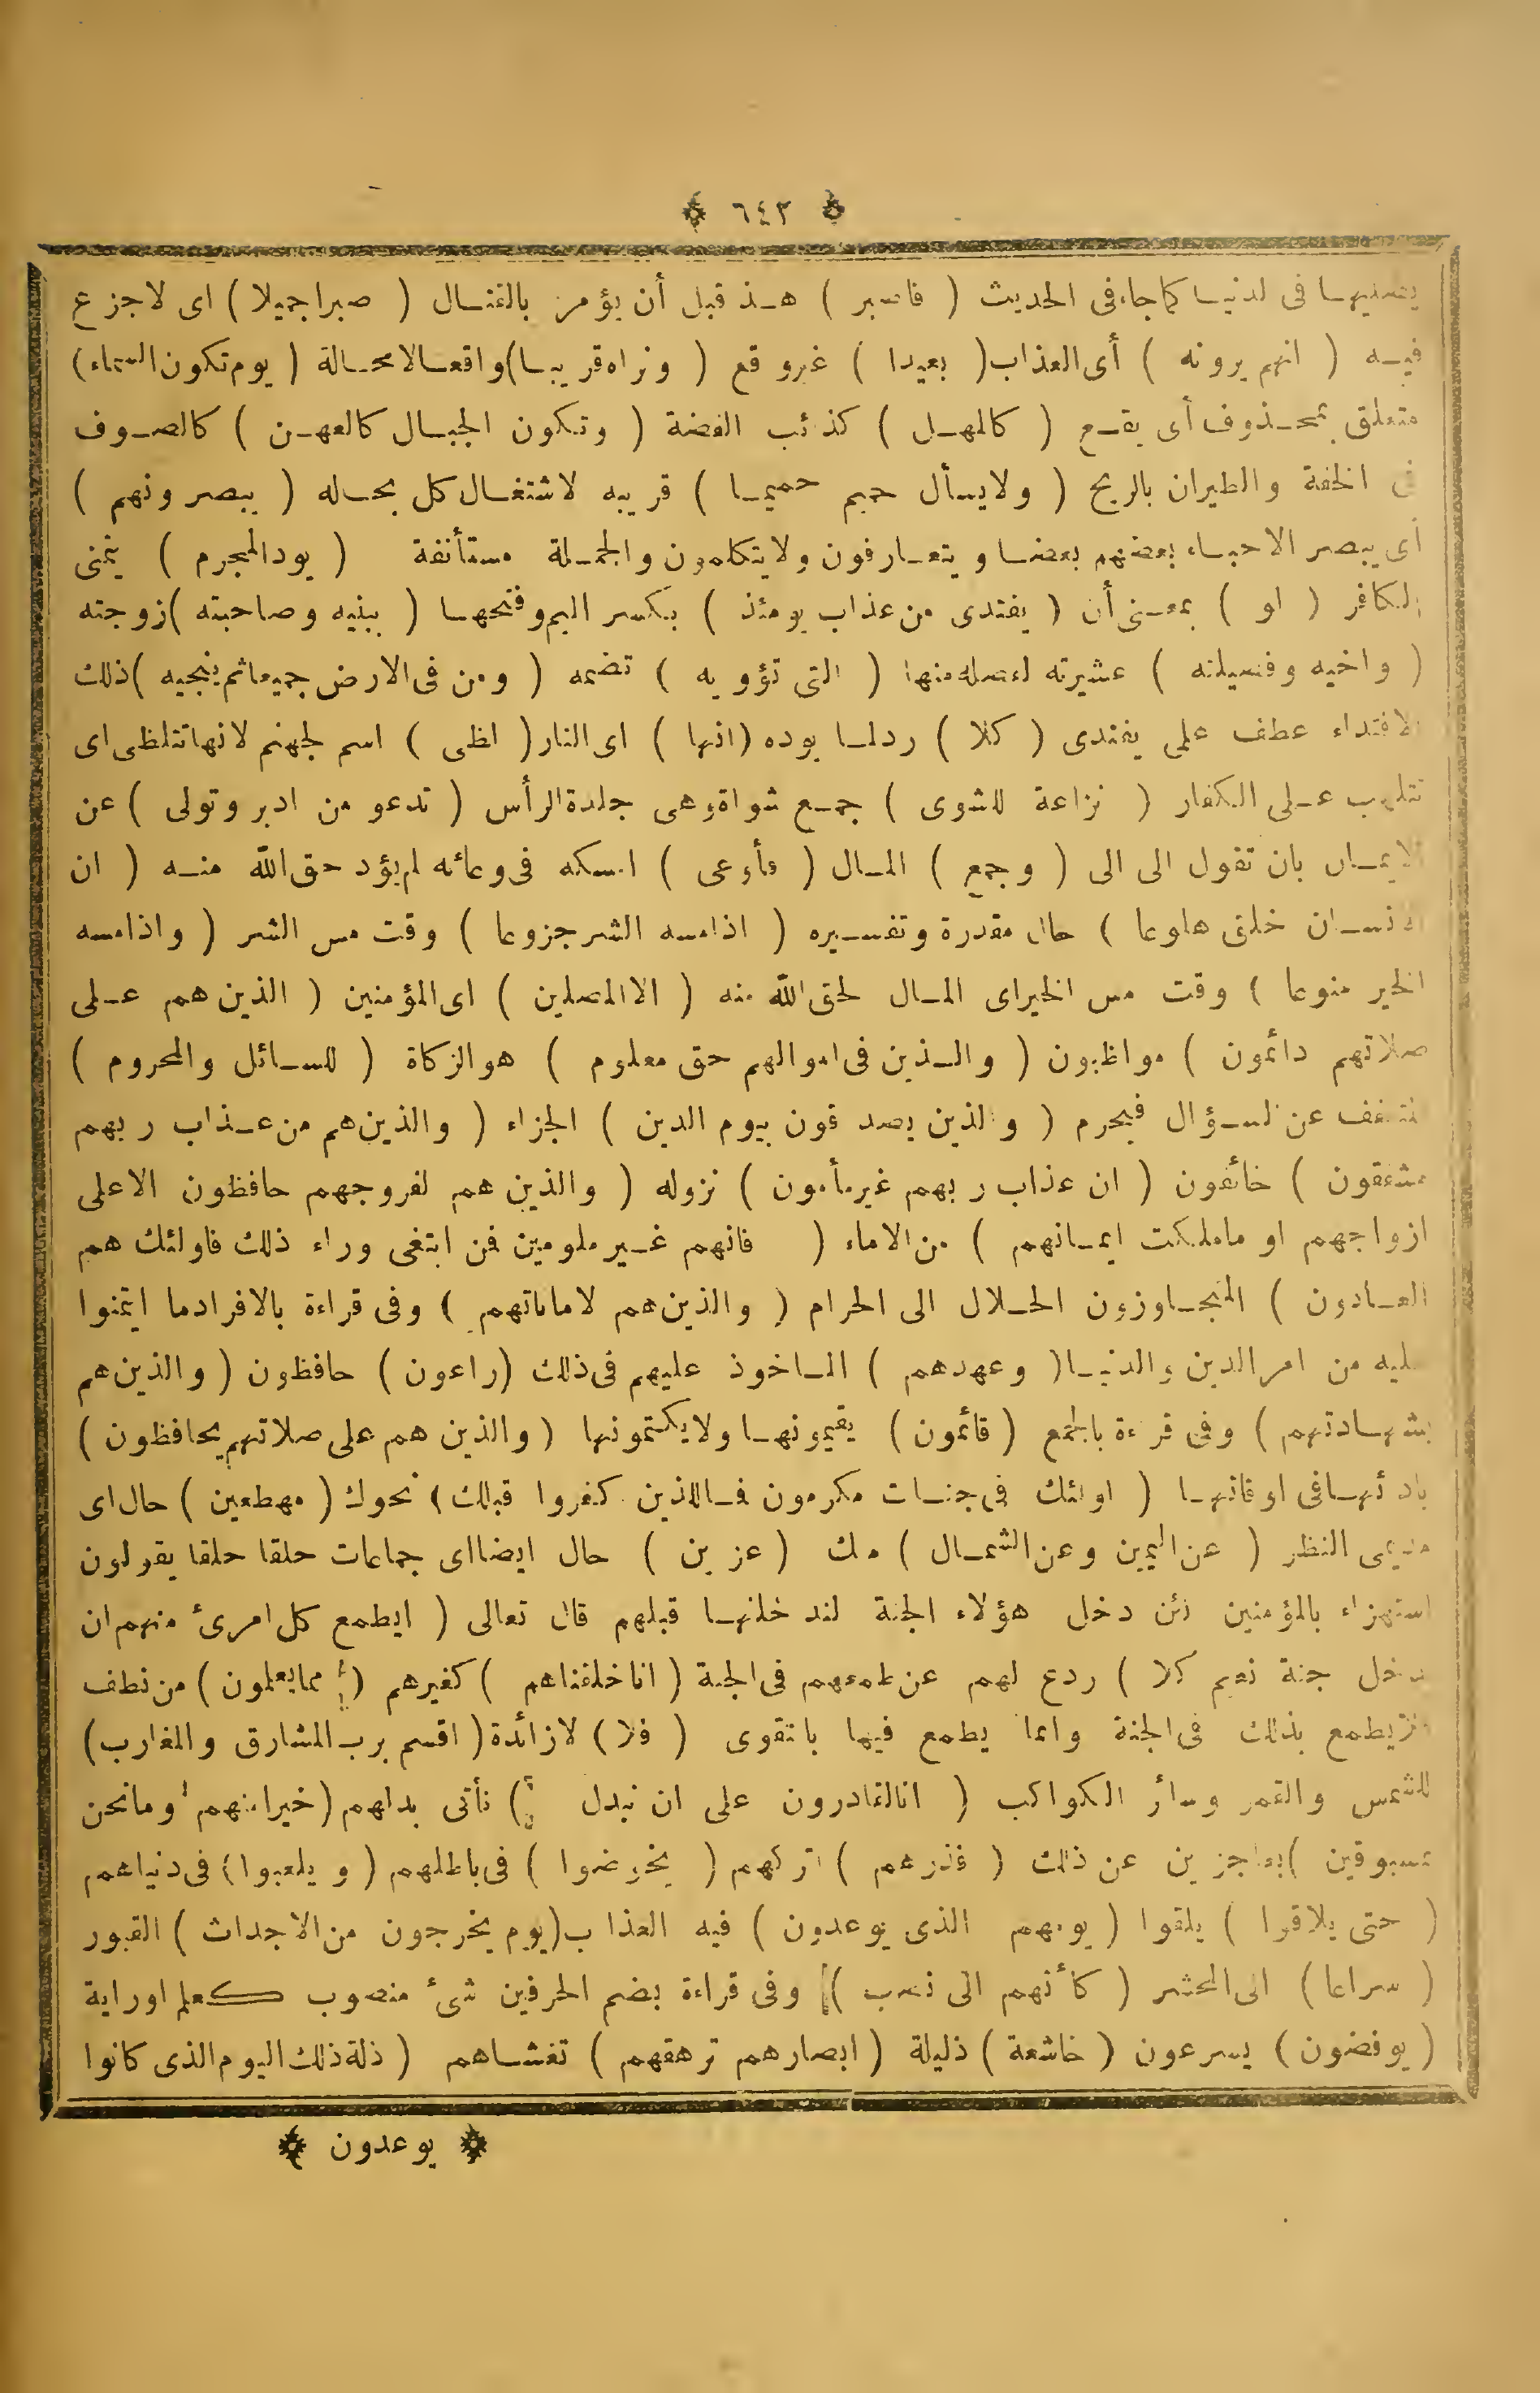 ﴿ ٦٤٣ ﴾
يصليها فى الدنيا كما جاء فى الحديث ( فاصبر ) هذا قبل أن يؤمر بالقتال ( صبرا جميلا ) اى لا جزع
فيه ( انهم يرونه ) أى العذاب ( بعيدا ) غير وقع ( ونراه قريبا ) واقعا لا محالة ( يوم تكون السماء )
متعلق بمحذوف أى يقع ( كالمهل ) كذائب الفضة ( وتكون الجبال كالعهن ) كالصوف
فى الخفة والطيران بالريح ( ولا يسأل حميم حميما ) قريبه لاشتغال كل بحاله ( يبصرونهم )
أى يبصر الاحباء بعضهم بعضا ويتعارفون ولا يتكلمون والجملة مستأنفة ( يود المجرم ) يتمنى
الكافر ( لو ) بمعنى أن ( يفتدى من عذاب يومئذ ) بكسر الميم وفتحها ( ببنيه وصاحبته ) زوجته
( واخيه وفصيلته ) عشيرته لفصله منها ( التى تؤويه ) تضمه ( ومن فى الارض جميعا ثم ينجيه ) ذلك
الافتداء عطف على يفتدى ( كلا ) رد لما يوده ( انها ) اى النار ( لظى ) اسم لجهنم لانها تتلظى اى
تتلهب على الكفار ( نزاعة للشوى ) جمع شواة وهى جلدة الرأس ( تدعو من ادبر وتولى ) عن
الايمان بان تقول الى الى ( وجمع ) المال ( فأوعى ) امسكه فى وعائه لم يؤد حق الله منه ( ان
الانسان خلق هلوعا ) حال مقدرة وتفسيره ( اذا مسه الشر جزوعا ) وقت مس الشر ( واذا مسه
الخير منوعا ) وقت مس الخير اى المال لحق الله منه ( الا المصلين ) اى المؤمنين ( الذين هم على
صلاتهم دائمون ) مواظبون ( والذين فى اموالهم حق معلوم ) هو الزكاة ( للسائل والمحروم )
المتعفف عن السؤال فيحرم ( والذين يصدقون بيوم الدين ) الجزاء ( والذين هم من عذاب ربهم
مشفقون ) خائفون ( ان عذاب ربهم غير مأمون ) نزوله ( والذين هم لفروجهم حافظون الا على
ازواجهم او ما ملكت ايمانهم ) من الاماء ( فانهم غير ملومين فن ابتغى وراء ذلك فاولئك هم
العادون ) المتجاوزون الحلال الى الحرام ( والذين هم لاماناتهم ) وفى قراءة بالافراد ما ائتمنوا
عليه من امر الدين والدنيا ( وعهدهم ) الماخوذ عليهم فى ذلك ( راعون ) حافظون ( والذين هم
بشهادتهم ) وفى قراءة بالجمع ( قائمون ) يقيمونها ولا يكتمونها ( والذين هم على صلاتهم يحافظون )
بادائها فى اوقاتها ( اولئك فى جنات مكرمون فمال الذين كفروا قبلك ) نحوك ( مهطعين ) حال اى
مديمى النظر ( عن اليمين وعن الشمال ) منك ( عزين ) حال ايضا اى جماعات حلقا حلقا يقولون
استهزاء بالمؤمنين لئن دخل هؤلاء الجنة لندخلنها قبلهم قال تعالى ( ايطمع كل امرئ منهم ان
يدخل جنة نعيم كلا ) ردع لهم عن طمعهم فى الجنة ( انا خلقناهم ) كغيرهم ( مما يعلمون ) من نطف
فلا يطمع بذلك فى الجنة وانما يطمع فيها بالتقوى ( فلا ) لا زائدة ( اقسم برب المشارق والمغارب )
للشمس والقمر وسائر الكواكب ( انا لقادرون على ان نبدل ) نأتى بدلهم ( خيرا منهم وما نحن
بمسبوقين ) بعاجزين عن ذلك ( فذرهم ) اتركهم ( يخوضوا ) فى باطلهم ( ويلعبوا ) فى دنياهم
( حتى يلاقوا ) يلقوا ( يومهم الذى يوعدون ) فيه العذاب ( يوم يخرجون من الاجداث ) القبور
( سراعا ) الى المحشر ( كأنهم الى نصب ) وفى قراءة بضم الحرفين شئ منصوب كعلم او راية
( يوفضون ) يسرعون ( خاشعة ) ذليلة ( ابصارهم ترهقهم ) تغشاهم ( ذلة ذلك اليوم الذى كانوا
﴿ يوعدون ﴾